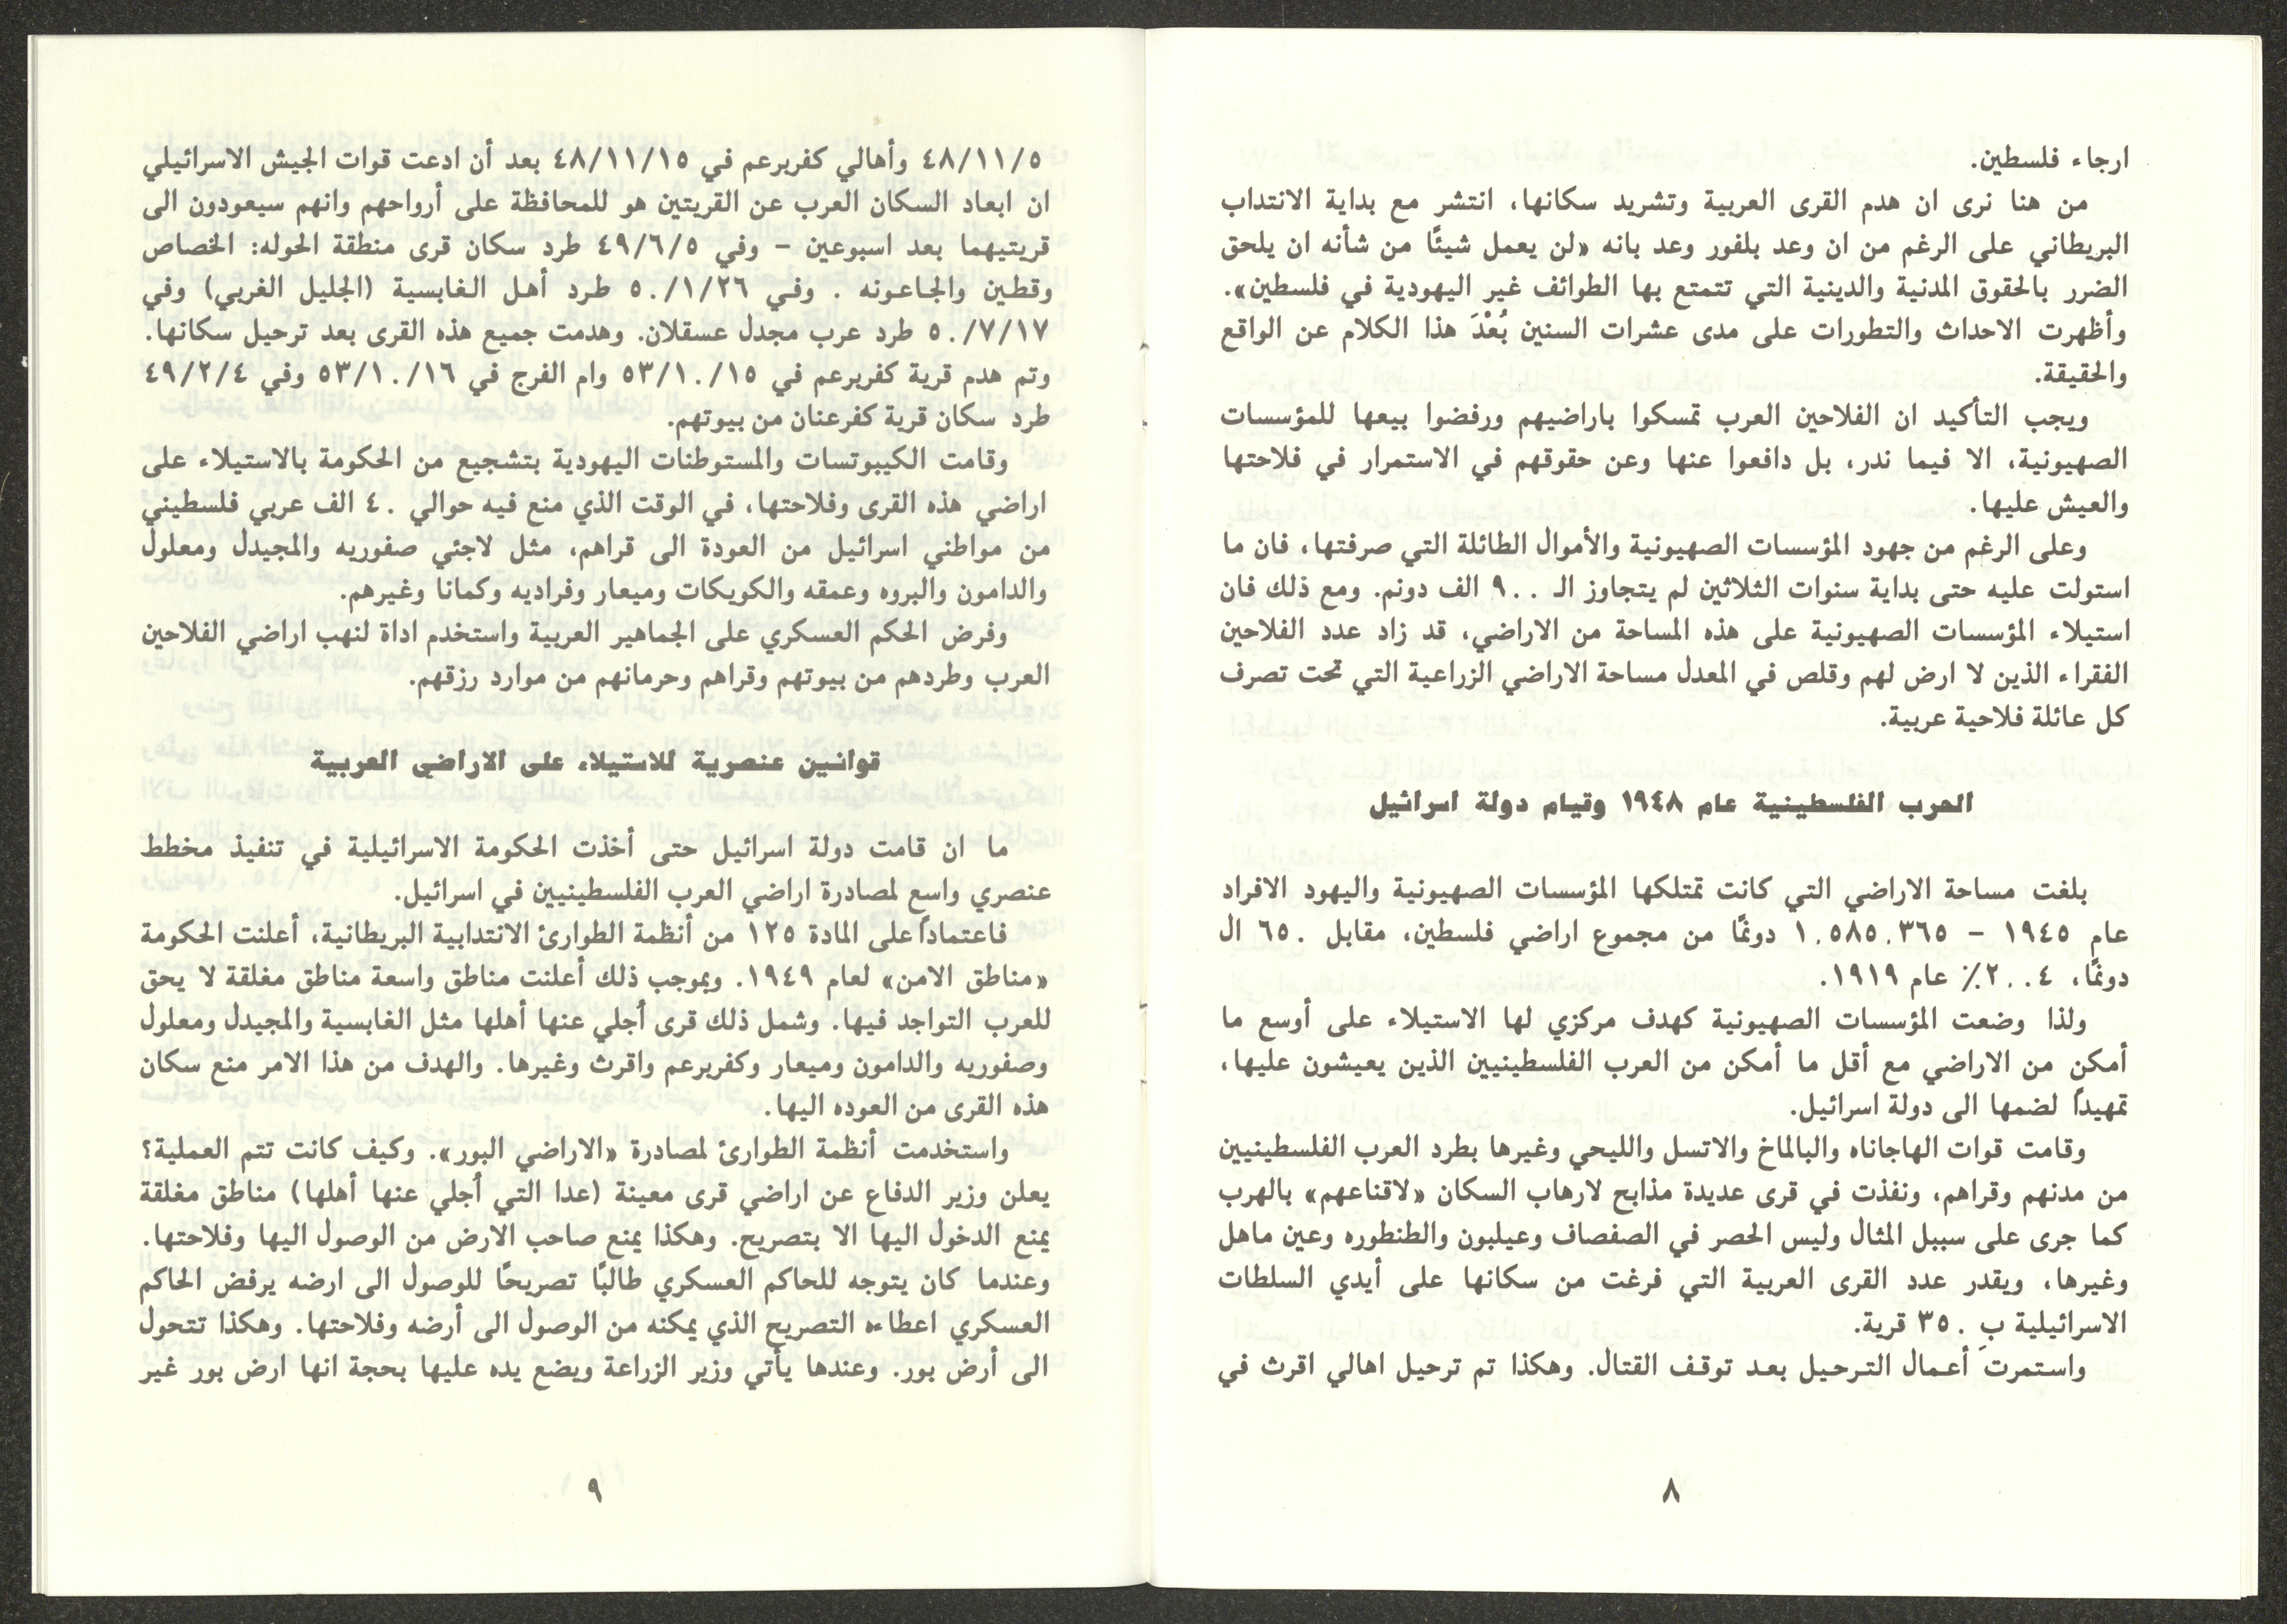 ارجاء فلسطين.
من هنا نرى ان هدم القرى العربية وتشريد سكانها، انتشر مع بداية الانتداب
البريطاني على الرغم من ان وعد بلفور وعد بانه «لن يعمل شيئًا من شأنه ان يلحق
الضرر بالحقوق المدنية والدينية التي تتمتع بها الطوائف غير اليهودية في فلسطين».
وأظهرت الاحداث والتطورات على مدى عشرات السنين بُعْدَ هذا الكلام عن الواقع
والحقيقة.
ويجب التأكيد ان الفلاحين العرب تمسكوا باراضيهم ورفضوا بيعها للمؤسسات
الصهيونية، الا فيما ندر، بل دافعوا عنها وعن حقوقهم في الاستمرار في فلاحتها
والعيش عليها.
وعلى الرغم من جهود المؤسسات الصهيونية والأموال الطائلة التي صرفتها، فان ما
استولت عليه حتى بداية سنوات الثلاثين لم يتجاوز الـ ٩٠٠ الف دونم. ومع ذلك فان
استيلاء المؤسسات الصهيونية على هذه المساحة من الاراضي، قد زاد عدد الفلاحين
الفقراء الذين لا ارض لهم وقلص في المعدل مساحة الاراضي الزراعية التي تحت تصرف
كل عائلة فلاحية عربية.
الحرب الفلسطينية عام ١٩٤٨ وقيام دولة اسرائيل
بلغت مساحة الاراضي التي كانت تمتلكها المؤسسات الصهيونية واليهود الافراد
عام ١٩٤٥ – ١,٥٨٥,٣٦٥ دونمًا من مجموع اراضي فلسطين، مقابل ٦٥٠ ال
دونمًا، ٢,٠٤٪ عام ١٩١٩.
ولذا وضعت المؤسسات الصهيونية كهدف مركزي لها الاستيلاء على أوسع ما
أمكن من الاراضي مع أقل ما أمكن من العرب الفلسطينيين الذين يعيشون عليها،
تمهيداً لضمها الى دولة اسرائيل.
وقامت قوات الهاجاناه والبالماخ والاتسل والليحي وغيرها بطرد العرب الفلسطينيين
من مدنهم وقراهم، ونفذت في قرى عديدة مذابح لارهاب السكان «لاقناعهم» بالهرب
كما جرى على سبيل المثال وليس الحصر في الصفصاف وعيلبون والطنطوره وعين ماهل
وغيرها، ويقدر عدد القرى العربية التي فرغت من سكانها على أيدي السلطات
الاسرائيلية بِ ٣٥٠ قرية.
واستمرت أعمال الترحيل بعد توقف القتال. وهكذا تم ترحيل اهالي اقرث في
٨
٤٨/١١/٥ وأهالي كفربرعم في ٤٨/١١/١٥ بعد أن ادعت قوات الجيش الاسرائيلي
ان ابعاد السكان العرب عن القريتين هو للمحافظة على أرواحهم وانهم سيعودون الى
قريتيهما بعد اسبوعين – وفي ٤٩/٦/٥ طرد سكان قرى منطقة الحوله: الخصاص
وقطين والجاعونه . وفي ٥٠/١/٢٦ طرد أهل الغابسية (الجليل الغربي) وفي
٥٠/٧/١٧ طرد عرب مجدل عسقلان. وهدمت جميع هذه القرى بعد ترحيل سكانها.
وتم هدم قرية كفربرعم في ٥٣/١٠/١٥ وام الفرج في ٥٣/١٠/١٦ وفي ٤٩/٢/٤
طرد سكان قرية كفرعنان من بيوتهم.
وقامت الكيبوتسات والمستوطنات اليهودية بتشجيع من الحكومة بالاستيلاء على
اراضي هذه القرى وفلاحتها، في الوقت الذي منع فيه حوالي ٤٠ الف عربي فلسطيني
من مواطني اسرائيل من العودة الى قراهم، مثل لاجئي صفوريه والمجيدل ومعلول
والدامون والبروه وعمقه والكويكات وميعار وفراديه وكمانا وغيرهم.
وفرض الحكم العسكري على الجماهير العربية واستخدم اداة لنهب اراضي الفلاحين
العرب وطردهم من بيوتهم وقراهم وحرمانهم من موارد رزقهم.
قوانين عنصرية للاستيلاء على الاراضي العربية
ما ان قامت دولة اسرائيل حتى أخذت الحكومة الاسرائيلية في تنفيذ مخطط
عنصري واسع لمصادرة اراضي العرب الفلسطينيين في اسرائيل.
فاعتماداً على المادة ١٢٥ من أنظمة الطوارئ الانتدابية البريطانية، أعلنت الحكومة
«مناطق الامن» لعام ١٩٤٩. وبموجب ذلك أعلنت مناطق واسعة مناطق مغلقة لا يحق
للعرب التواجد فيها. وشمل ذلك قرى أجلي عنها أهلها مثل الغابسية والمجيدل ومعلول
وصفوريه والدامون وميعار وكفربرعم واقرث وغيرها. والهدف من هذا الامر منع سكان
هذه القرى من العوده اليها.
واستخدمت أنظمة الطوارئ لمصادرة «الاراضي البور». وكيف كانت تتم العملية؟
يعلن وزير الدفاع عن اراضي قرى معينة (عدا التي أجلي عنها أهلها) مناطق مغلقة
يمنع الدخول اليها الا بتصريح. وهكذا يمنع صاحب الارض من الوصول اليها وفلاحتها.
وعندما كان يتوجه للحاكم العسكري طالبًا تصريحًا للوصول الى ارضه يرفض الحاكم
العسكري اعطاءه التصريح الذي يمكنه من الوصول الى أرضه وفلاحتها. وهكذا تتحول
الى أرض بور. وعندها يأتي وزير الزراعة ويضع يده عليها بحجة انها ارض بور غير
٩